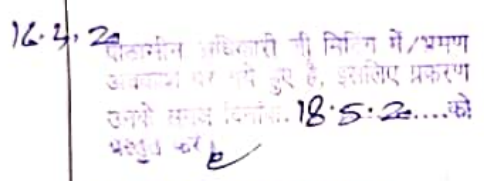 16.3.20
पीठासीन अधिकारी जी मिटिंग में/भ्रमण
अवकाश पर गये हुए है, इसलिए प्रकरण
उनके समक्ष दिनांक. 18.5.20....को
प्रस्तुत करें।